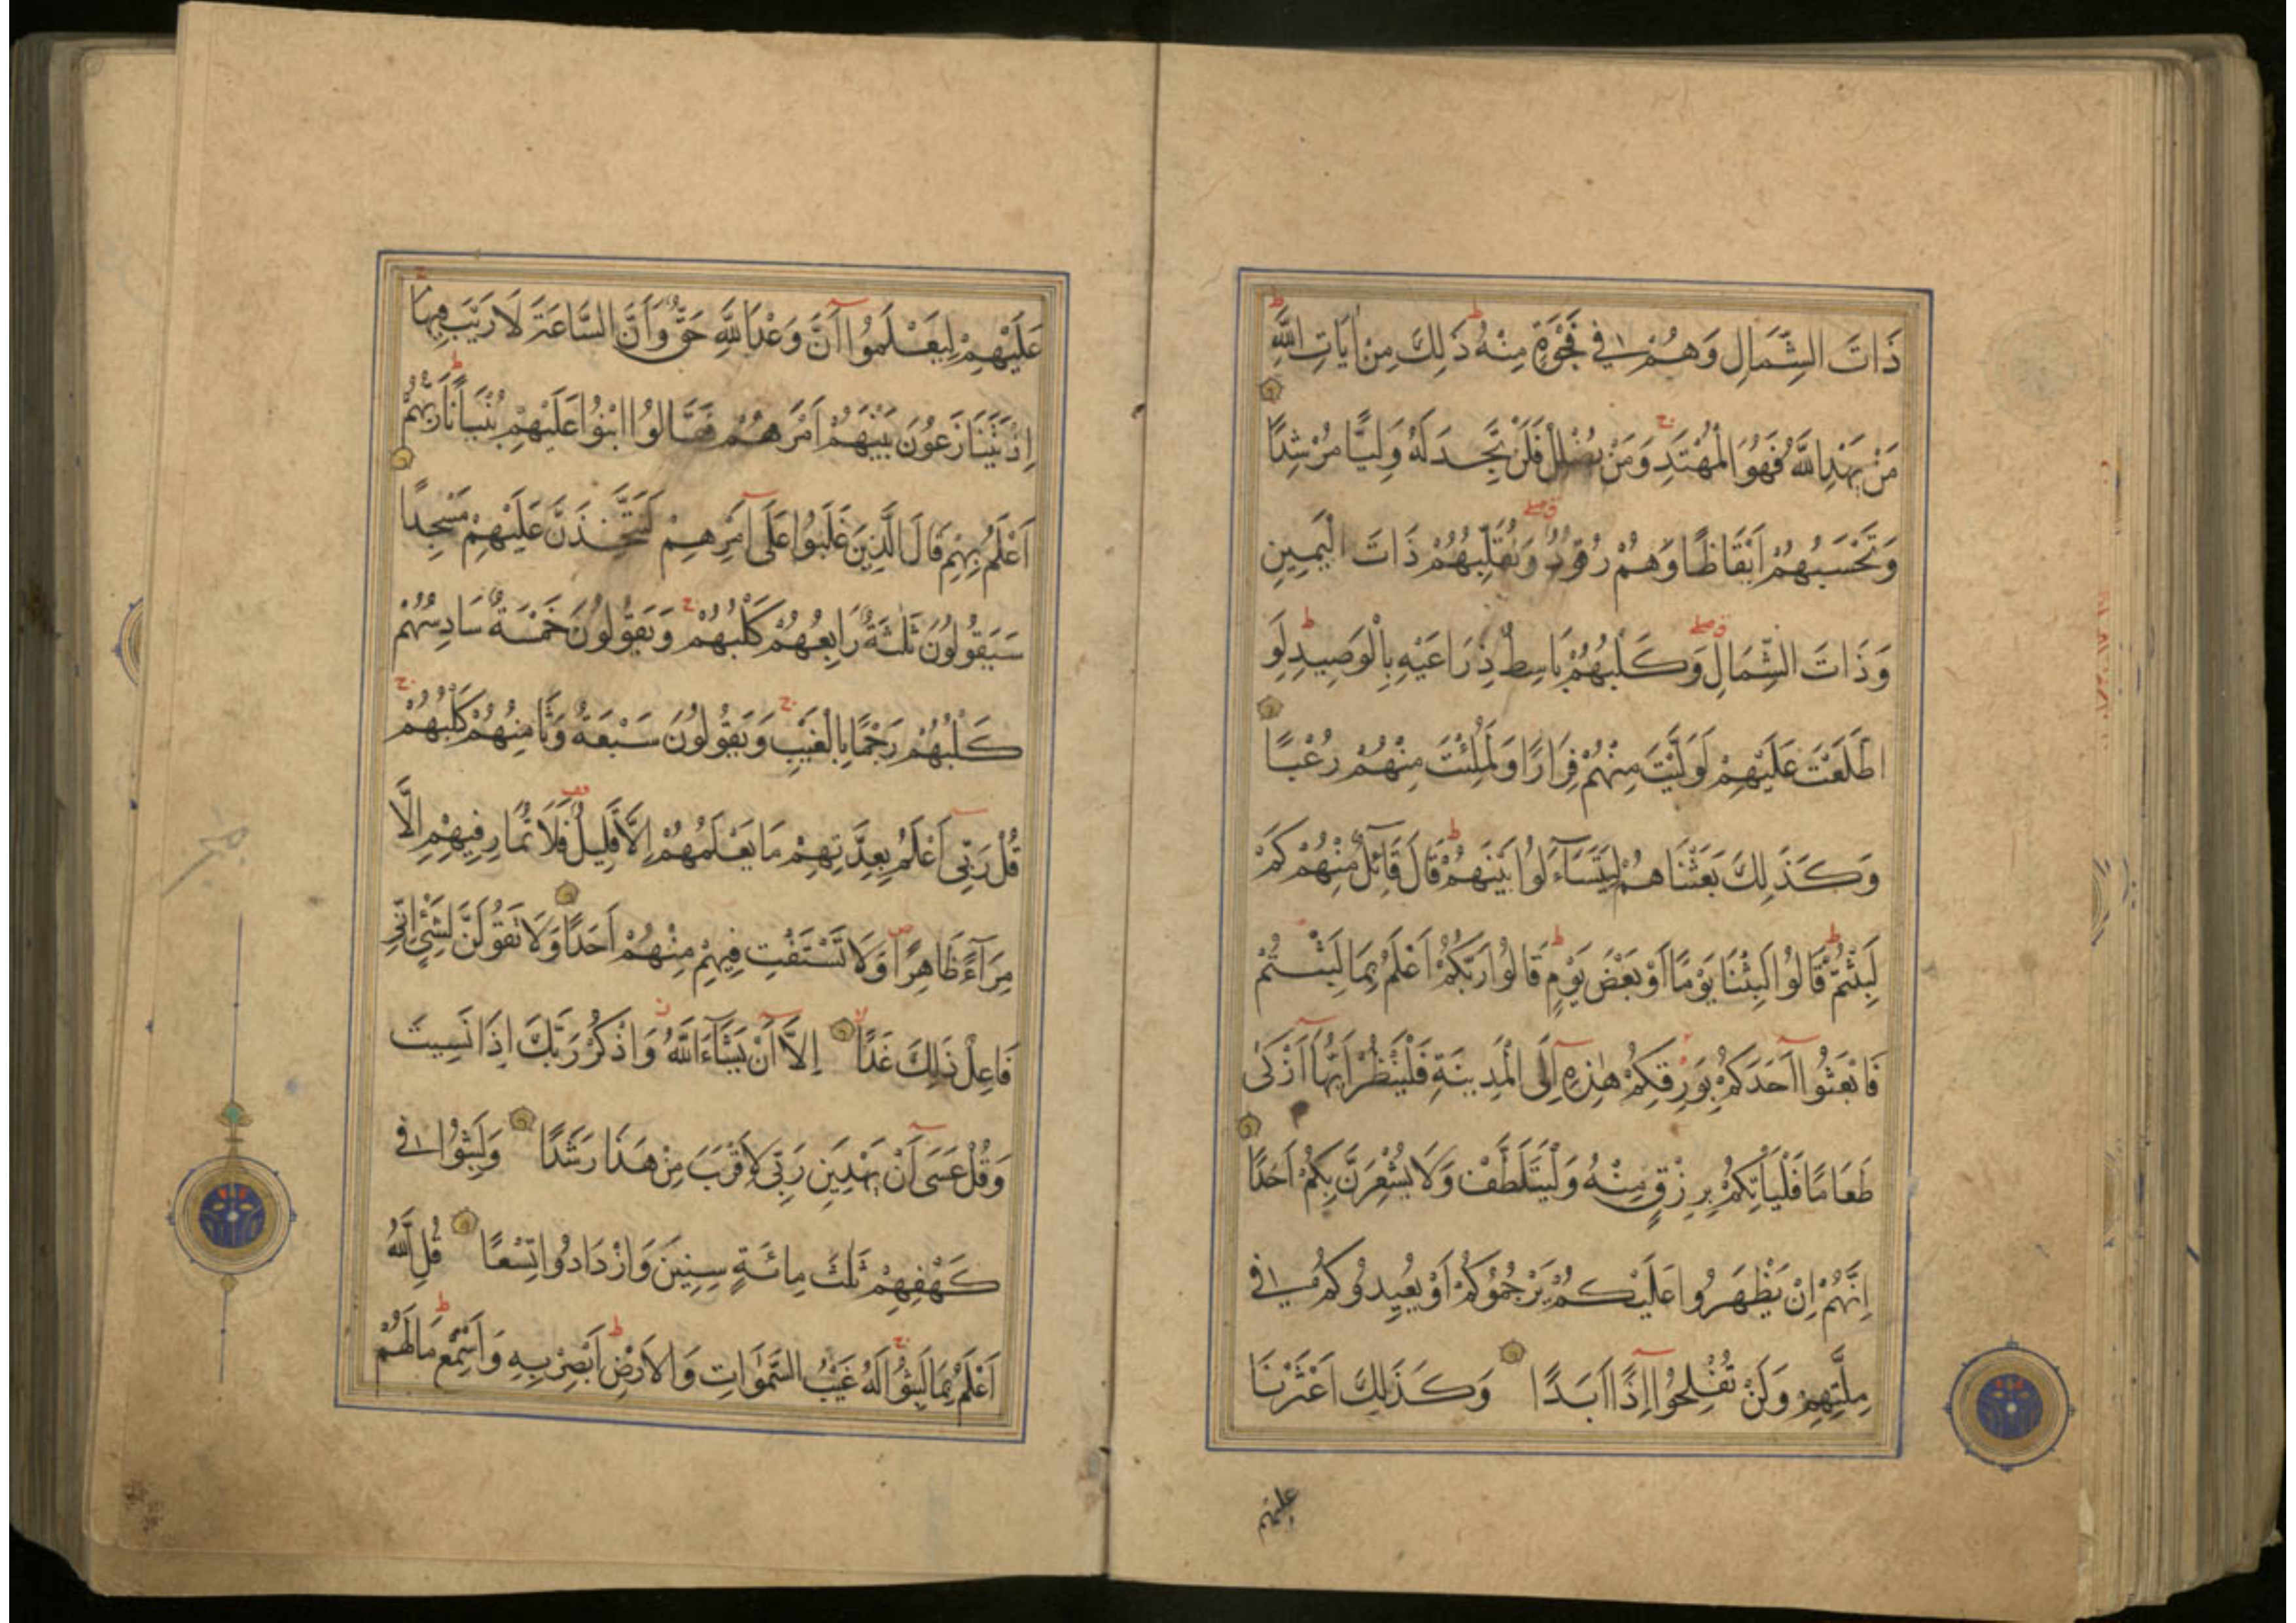 ذَاتَ الشِّمَالِ وَهُمْ فِي فَجْوَةٍ مِنْهُ ذَلِكَ مِنْ اٰيَاتِ اللَّهِ
مَنْ يَهْدِ اللَّهُ فَهُوَ الْمُهْتَدِ وَمَنْ يُضْلِلْ فَلَنْ تَجِدَ لَهُ وَلِيًّا مُرْشِدًا
وَتَحْسَبُهُمْ اَيْقَاظًا وَهُمْ رُقُودٌ وَنُقَلِّبُهُمْ ذَاتَ الْيَمِينِ
وَذَاتَ الشِّمَالِ وَكَلْبُهُمْ بَاسِطٌ ذِرَاعَيْهِ بِالْوَصِيدِ لَوِ
اطَّلَعْتَ عَلَيْهِمْ لَوَلَّيْتَ مِنْهُمْ فِرَارًا وَلَمُلِئْتَ مِنْهُمْ رُعْبًا
وَكَذَلِكَ بَعَثْنَاهُمْ لِيَتَسَآءَلُوا بَيْنَهُمْ قَالَ قَآئِلٌ مِنْهُمْ كَمْ
لَبِثْتُمْ قَالُوا لَبِثْنَا يَوْمًا اَوْ بَعْضَ يَوْمٍ قَالُوا رَبُّكُمْ اَعْلَمُ بِمَا لَبِثْتُمْ
فَابْعَثُوا اَحَدَكُمْ بِوَرِقِكُمْ هٰذِهِ اِلَى الْمَدِينَةِ فَلْيَنْظُرْ اَيُّهَا اَزْكٰى
طَعَامًا فَلْيَاْتِكُمْ بِرِزْقٍ مِنْهُ وَلْيَتَلَطَّفْ وَلَا يُشْعِرَنَّ بِكُمْ اَحَدًا
اِنَّهُمْ اِنْ يَظْهَرُوا عَلَيْكُمْ يَرْجُمُوكُمْ اَوْ يُعِيدُوكُمْ فِي
مِلَّتِهِمْ وَلَنْ تُفْلِحُوا اِذًا اَبَدًا وَكَذَلِكَ اَعْثَرْنَا
عليهم
عَلَيْهِمْ لِيَعْلَمُوا اَنَّ وَعْدَ اللَّهِ حَقٌّ وَاَنَّ السَّاعَةَ لَا رَيْبَ فِيهَا
اِذْ يَتَنَازَعُونَ بَيْنَهُمْ اَمْرَهُمْ فَقَالُوا ابْنُوا عَلَيْهِمْ بُنْيَانًا رَبُّهُمْ
اَعْلَمُ بِهِمْ قَالَ الَّذِينَ غَلَبُوا عَلَى اَمْرِهِمْ لَنَتَّخِذَنَّ عَلَيْهِمْ مَسْجِدًا
سَيَقُولُونَ ثَلٰثَةٌ رَابِعُهُمْ كَلْبُهُمْ وَيَقُولُونَ خَمْسَةٌ سَادِسُهُمْ
كَلْبُهُمْ رَجْمًا بِالْغَيْبِ وَيَقُولُونَ سَبْعَةٌ وَثَامِنُهُمْ كَلْبُهُمْ
قُلْ رَبِّى اَعْلَمُ بِعِدَّتِهِمْ مَا يَعْلَمُهُمْ اِلَّا قَلِيلٌ فَلَا تُمَارِ فِيهِمْ اِلَّا
مِرَآءً ظَاهِرًا وَلَا تَسْتَفْتِ فِيهِمْ مِنْهُمْ اَحَدًا وَلَا تَقُولَنَّ لِشَىْءٍ اِنِّى
فَاعِلٌ ذَلِكَ غَدًا اِلَّا اَنْ يَشَآءَ اللَّهُ وَاذْكُرْ رَبَّكَ اِذَا نَسِيتَ
وَقُلْ عَسَى اَنْ يَهْدِيَنِ رَبِّى لِاَقْرَبَ مِنْ هَذَا رَشَدًا وَلَبِثُوا فِي
كَهْفِهِمْ ثَلٰثَ مِائَةٍ سِنِينَ وَازْدَادُوا تِسْعًا قُلِ اللَّهُ
اَعْلَمُ بِمَا لَبِثُوا لَهُ غَيْبُ السَّمٰوَاتِ وَالْاَرْضِ اَبْصِرْ بِهِ وَاَسْمِعْ مَا لَهُمْ